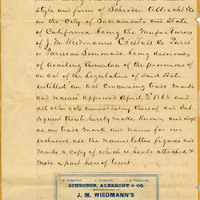 style and firm of Schroder Albrecht & Co
in the City of Sacramento and State
of California being the Manufacturers
of J. M. Wiedmanns Crystals de Paris
or Parisian being desirous
of availing themselves of the provisions of
an Act of the Legislature of said State
entitled an Act Concerning trade Marks
and names approved April 3d 1863 and
all other acts amendatory thereof and sub
sequent thereto hereby make known and sign
as our trade mark and name for our
exclusive use the names letter figures and
Marks a Copy of which is hereto attached &
Made a part hereof to wit.
SCHRODER, ALBRECHT & CO.
J. M. WIEDMANN'S